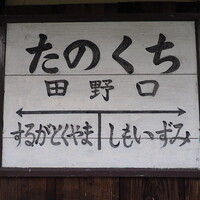 たのくち
田野口
するがとくやま しもいずみ